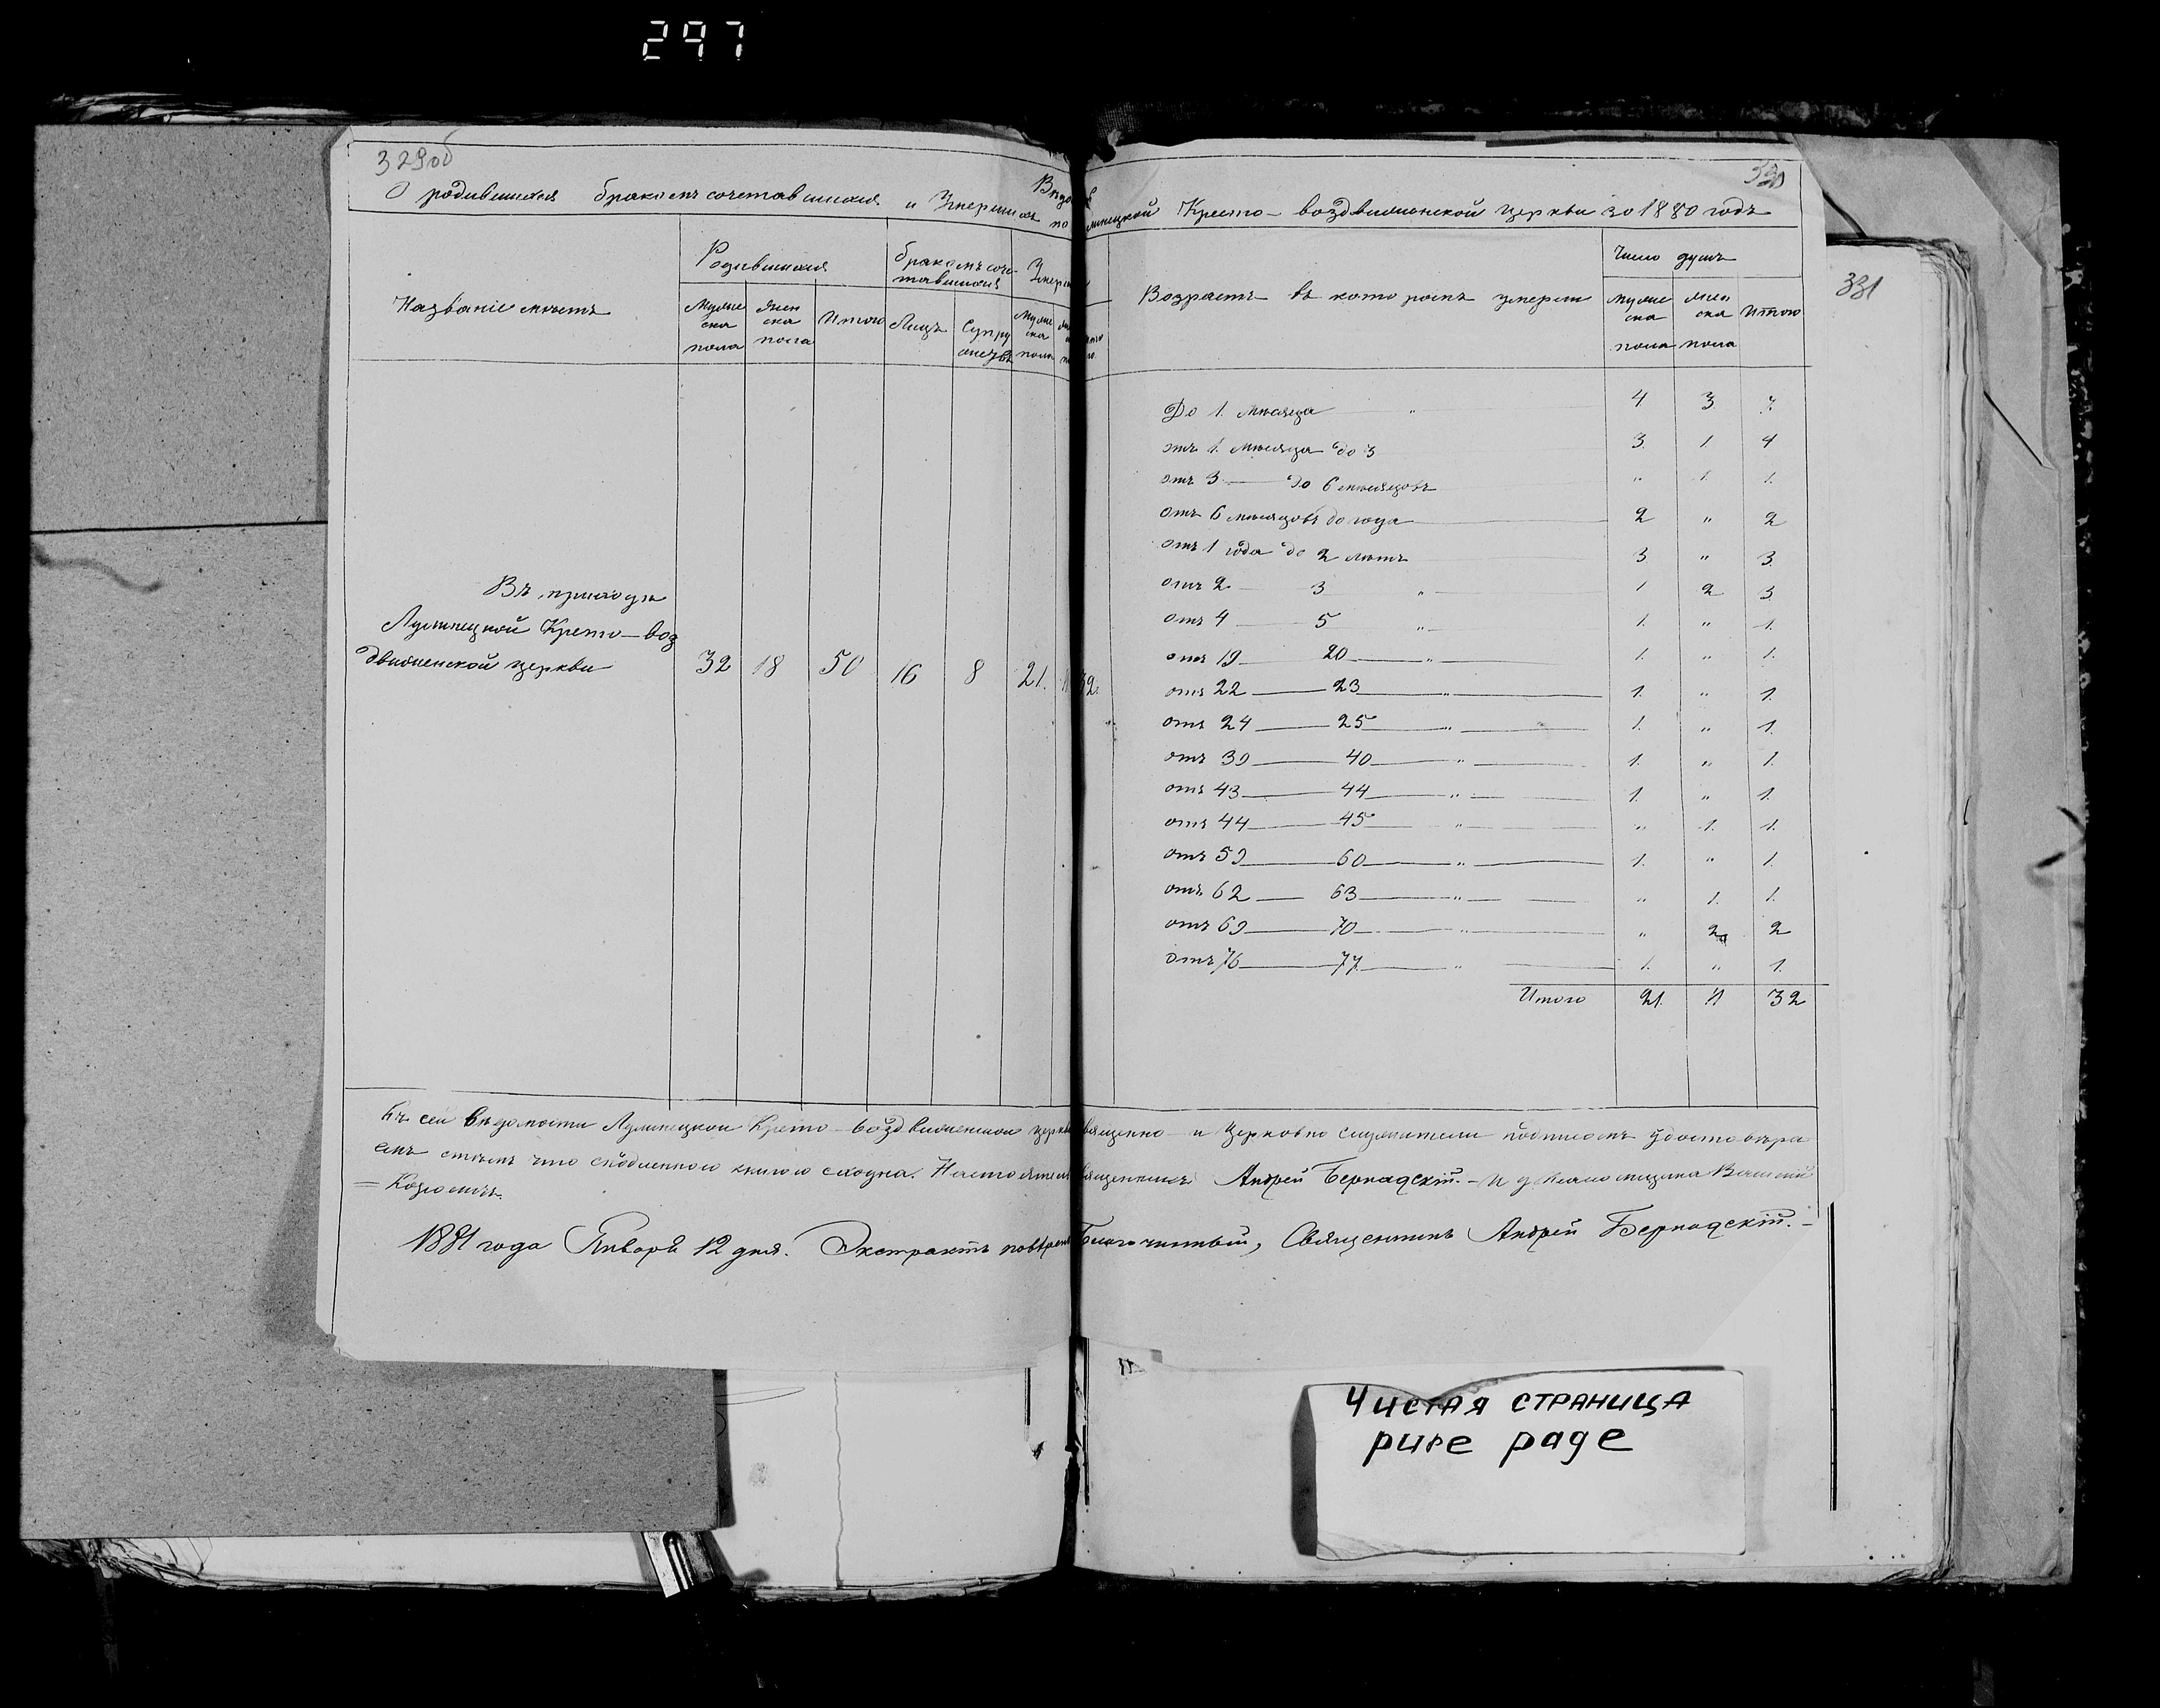 297
329об
330
331
Вѣдо
О родившихся бракомъ сочетавшихся и Умершихъ по
линецкой Кресто-воздвиженской церкви за 1880 годъ
Названіе мѣстъ
Родившихся
Мужескa пола
Женска пола
Итого
бракомъ сочетавшихся
Лицъ
Супружествъ
Умерш
Мужеска пола
Возрастъ въ которомъ умерли
Число душъ
Мужеска пола
Женска пола
Итого
Въ приходѣ
Кресто-воз
движенской церкви 32 18 50 16 8 21. 11 32.
До 1. мѣсяца " 4 3 7.
отъ 1. мѣсяца до 3 3. 1 4
отъ 3 — до 6 мѣсяцовъ " 1. 1.
отъ 6 мѣсяцовъ до года 2 " 2
отъ 1 года до 2 лѣтъ 3 " 3.
отъ 2 — 3 " 1 2 3.
отъ 4 — 5 " 1. " 1.
отъ 19 — 20 " 1. " 1.
отъ 22 — 23 " 1. " 1.
отъ 24 — 25 " 1. " 1.
отъ 39 — 40 " 1. " 1.
отъ 43 — 44 " 1. " 1.
отъ 44 — 45 " " 1. 1.
отъ 59 — 60 " 1. " 1.
отъ 62 — 63 " " 1. 1.
отъ 69 — 70 " " 2 2
отъ 76 — 77 " 1. " 1.
Итого 21. 11 32
Къ сей вѣдомости Кресто-воздвиженской церкви священно и Церковно служители подписомъ удостовѣря
емъ что съ подленною книгою сходна. Настоятель священникъ Андрей Бернадскій. — И д
1881 года Января 12 дня. Экстрактъ повѣрялъ Благочинный, Священникъ Андрей Бернадскій. —
Чистая страница
pure page